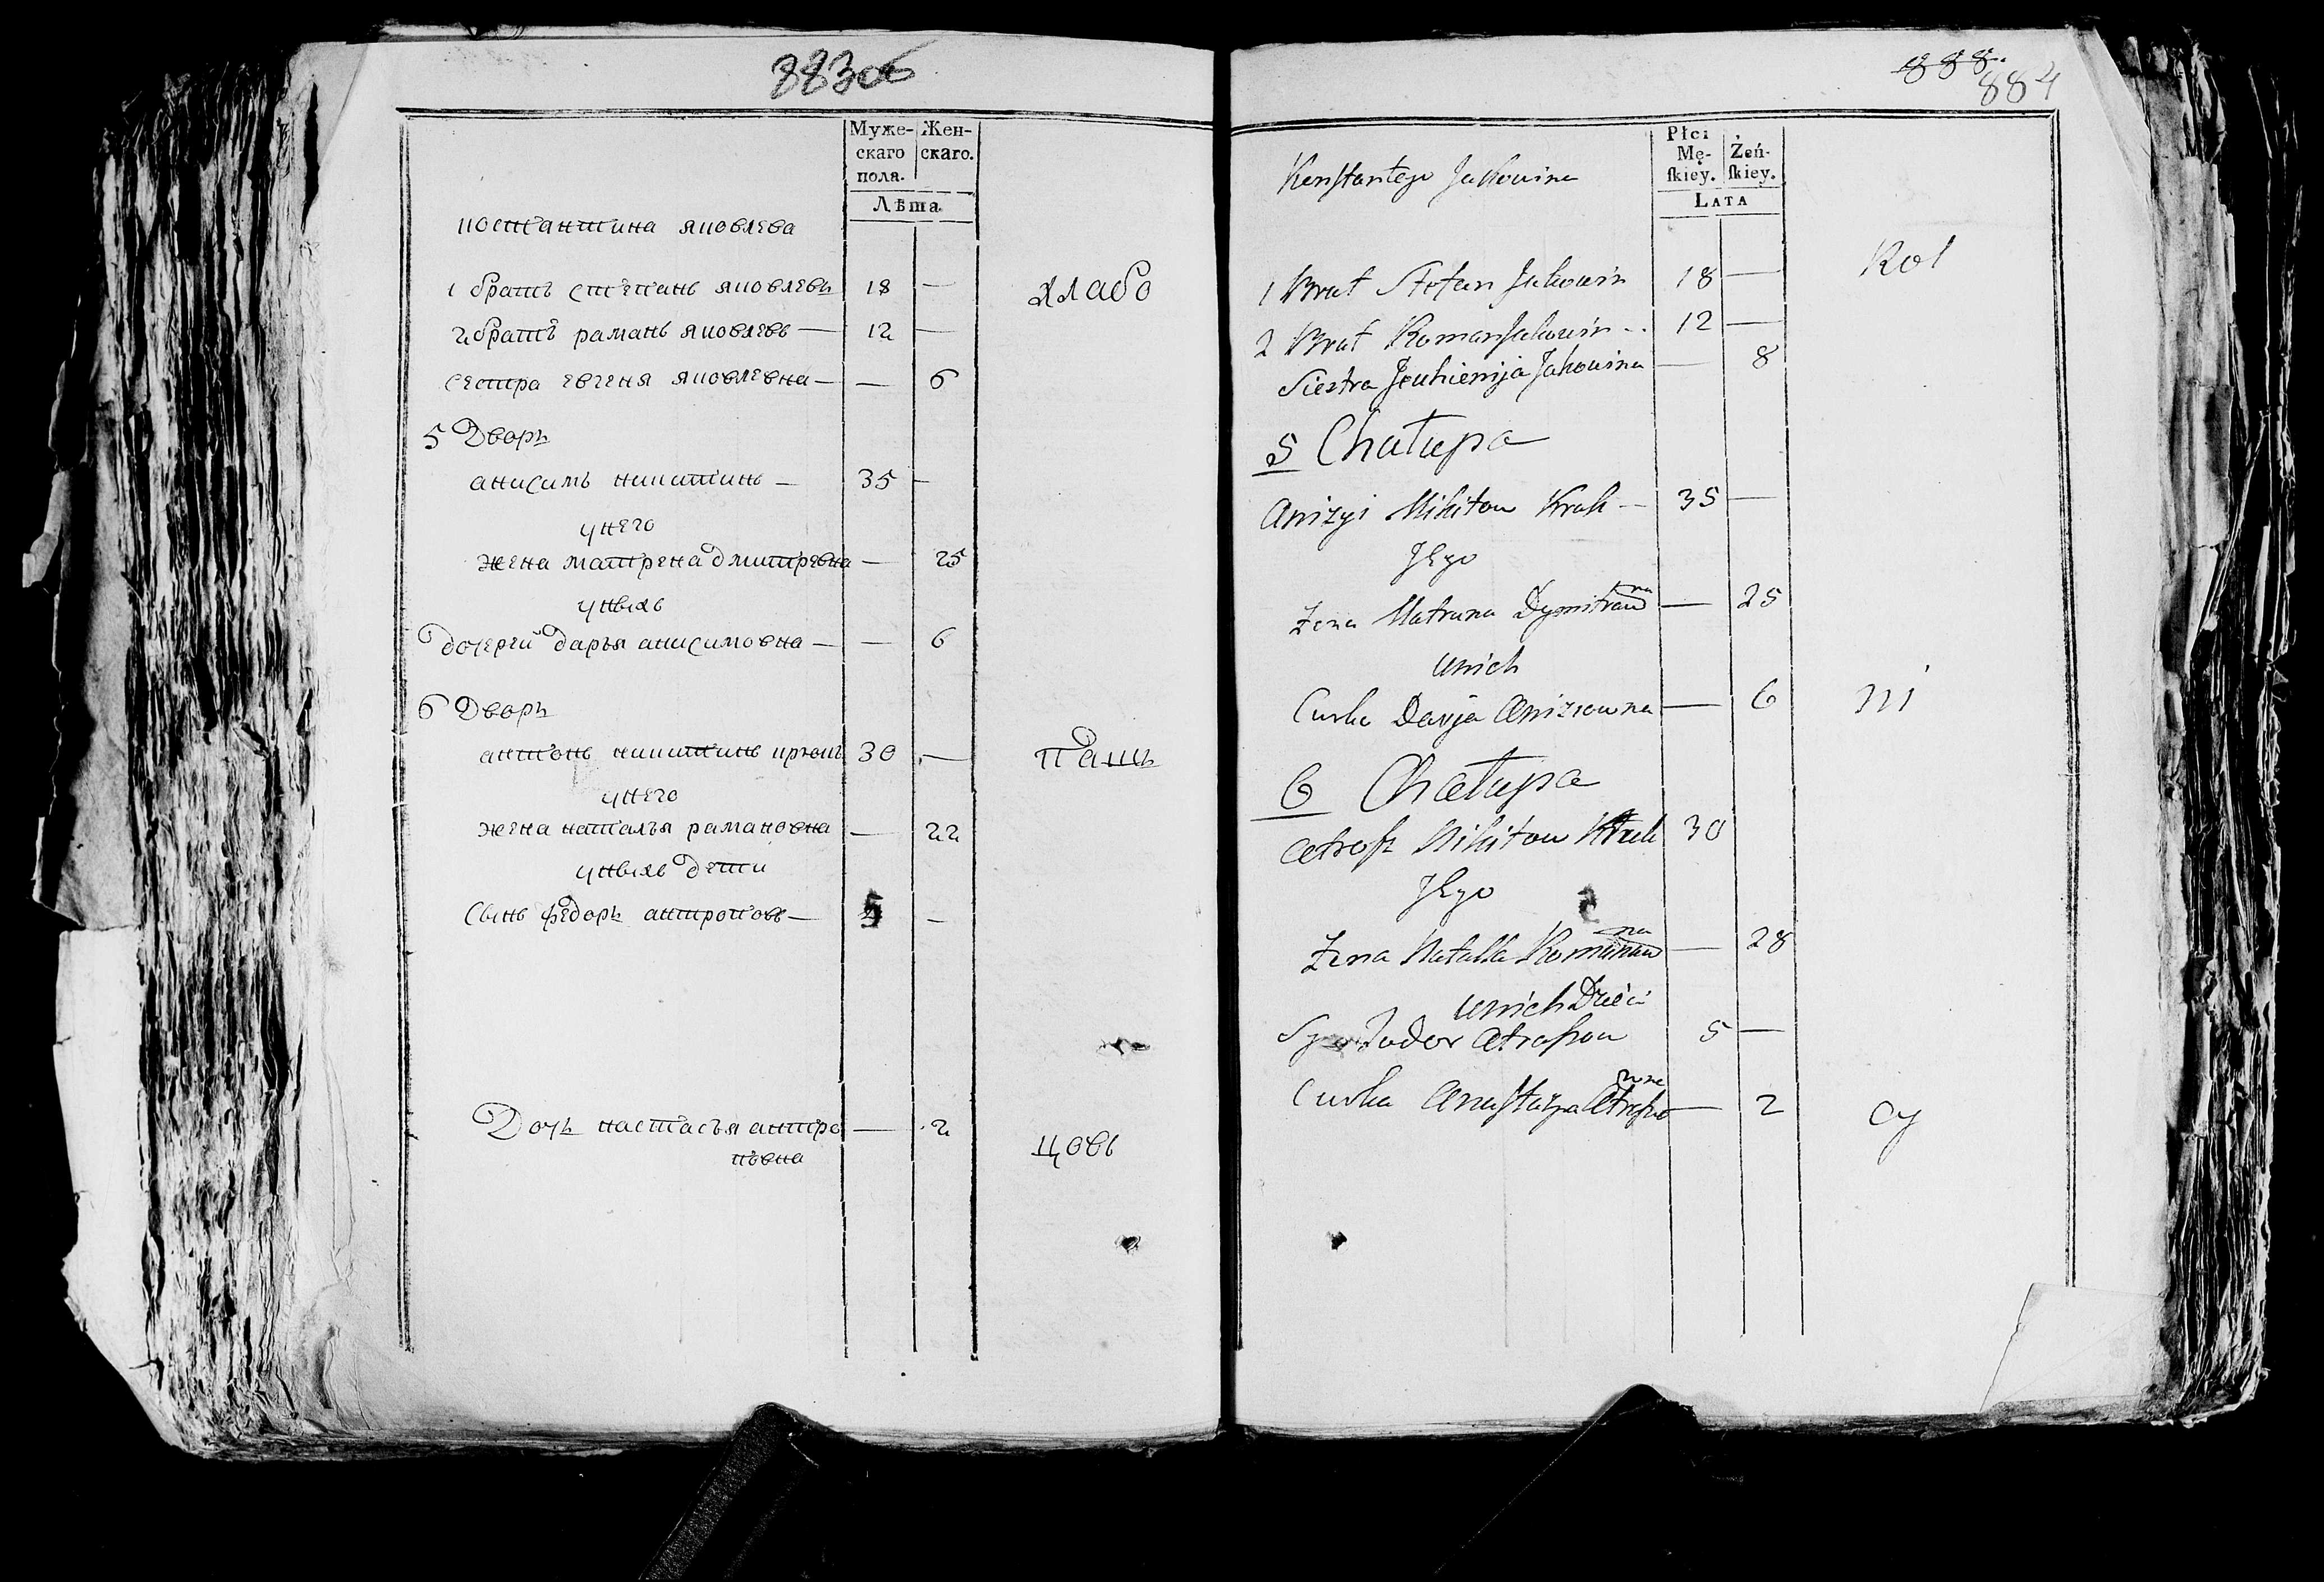 883об
Муже-
скаго
пола.
Жен-
скаго.
Лѣта
костантина яковлева
1 братъ степанъ яковлевъ 18 —
хлабо
2 братъ раманъ яковлевъ — 12 —
сестра евгеня яковлевна — — 6
5 Дворъ
анисимъ никитинъ — 35 —
унего
жена матрена дмитревна — 25
унихъ
дочерей дарья анисимовна — — 6
6 Дворъ
антонъ никитинъ крюкъ 30 —
пащъ
унего
жена наталья рамановна — 22
унихъ дети
сынъ федоръ антроповъ — 5 —
Дочь настасья антро — 2
повна
цовъ
888.
884
Płci
Mę-
skiey.
Żeń-
skiey.
LATA
Konstantego Jakowina
Kol
1 Brat Stefan Jakowin 18 —
2 Brat Roman Jakowin - . 12 —
Siestra Jeuhienija Jakowina — 8
5 Chałupa
Anizyi Mikitow Kruk - - 35 —
Jego
Żona Matruna Dymitrowna — 25
unich
Curka Darja Anizowna — 6
ni
6 Chałupa
Atrofi Mikitow Kruk 30
Jego
Żona Natalla Romanowna — 28
unich Dzieci
Syn Fudor Atrafiow 5 —
Curka Anastazya Atrafiowna — 2
cy